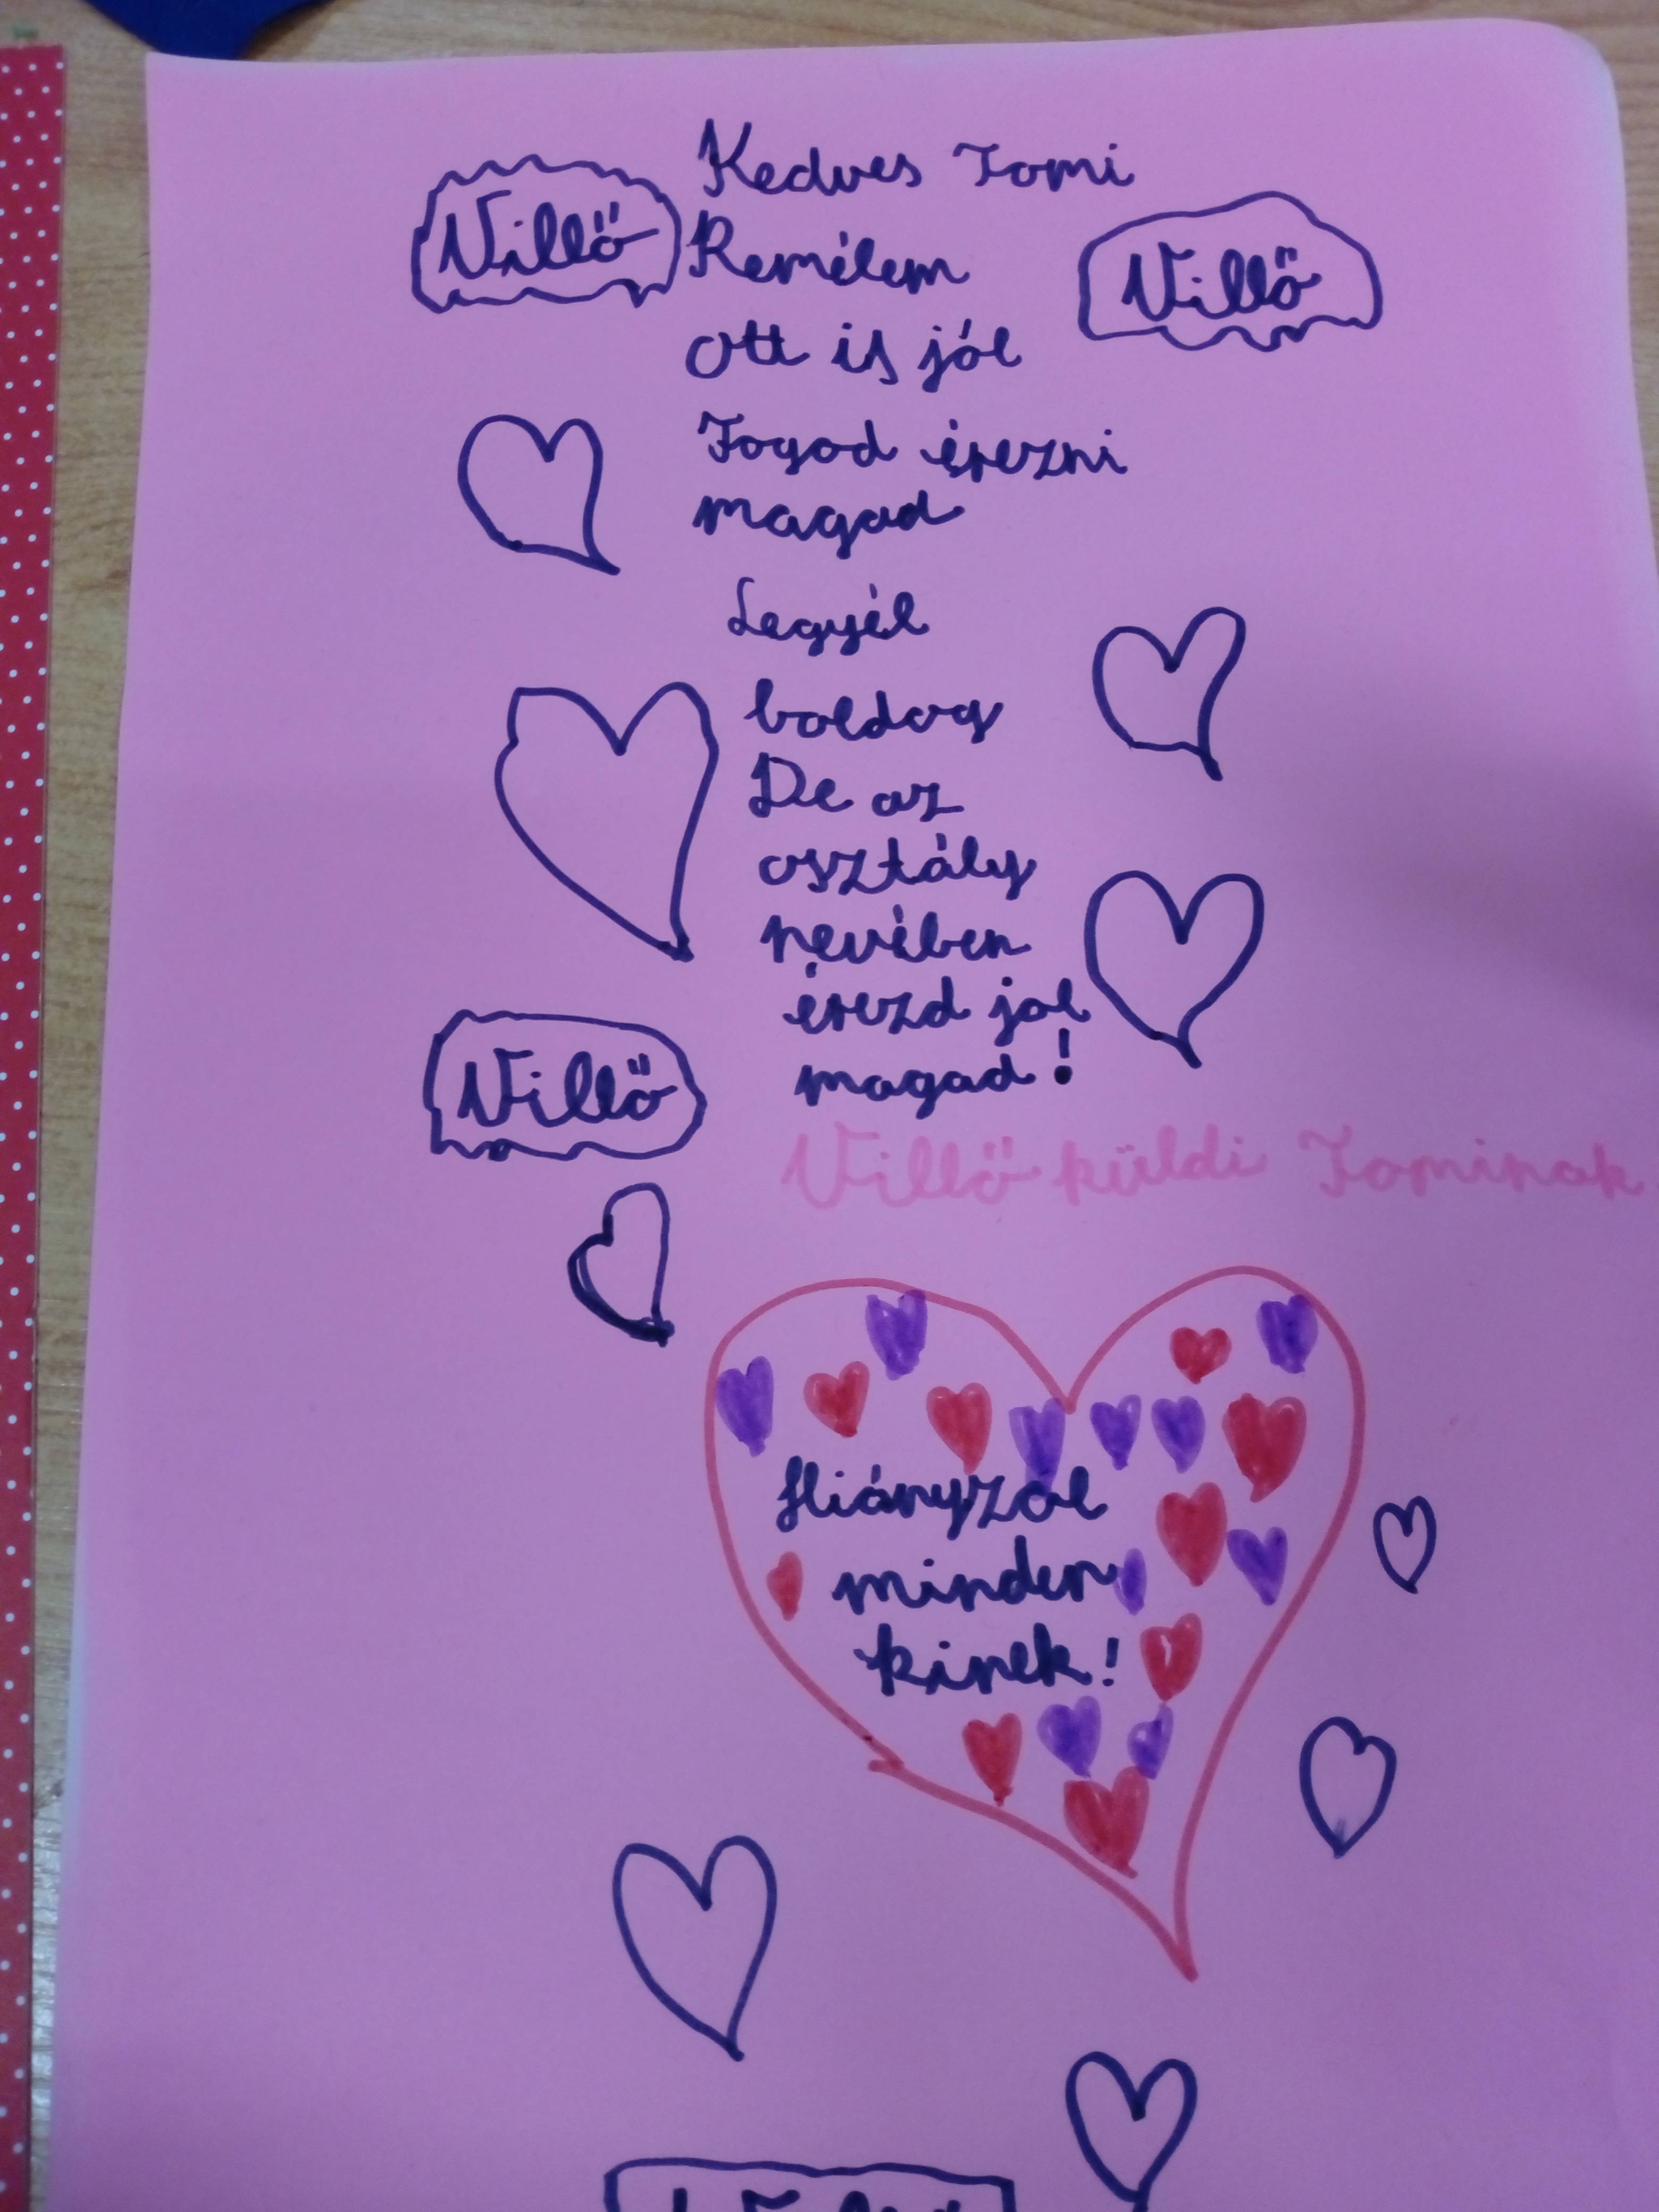 Kedves Tomi
Villő
Remélem
Villő
ott is jól
Fogod érezni
magad
Legyél
boldog
De az
osztály
nevében
érezd jol
magad!
Villő
Villő küldi Tominak
Hiányzol
minden
kinek!